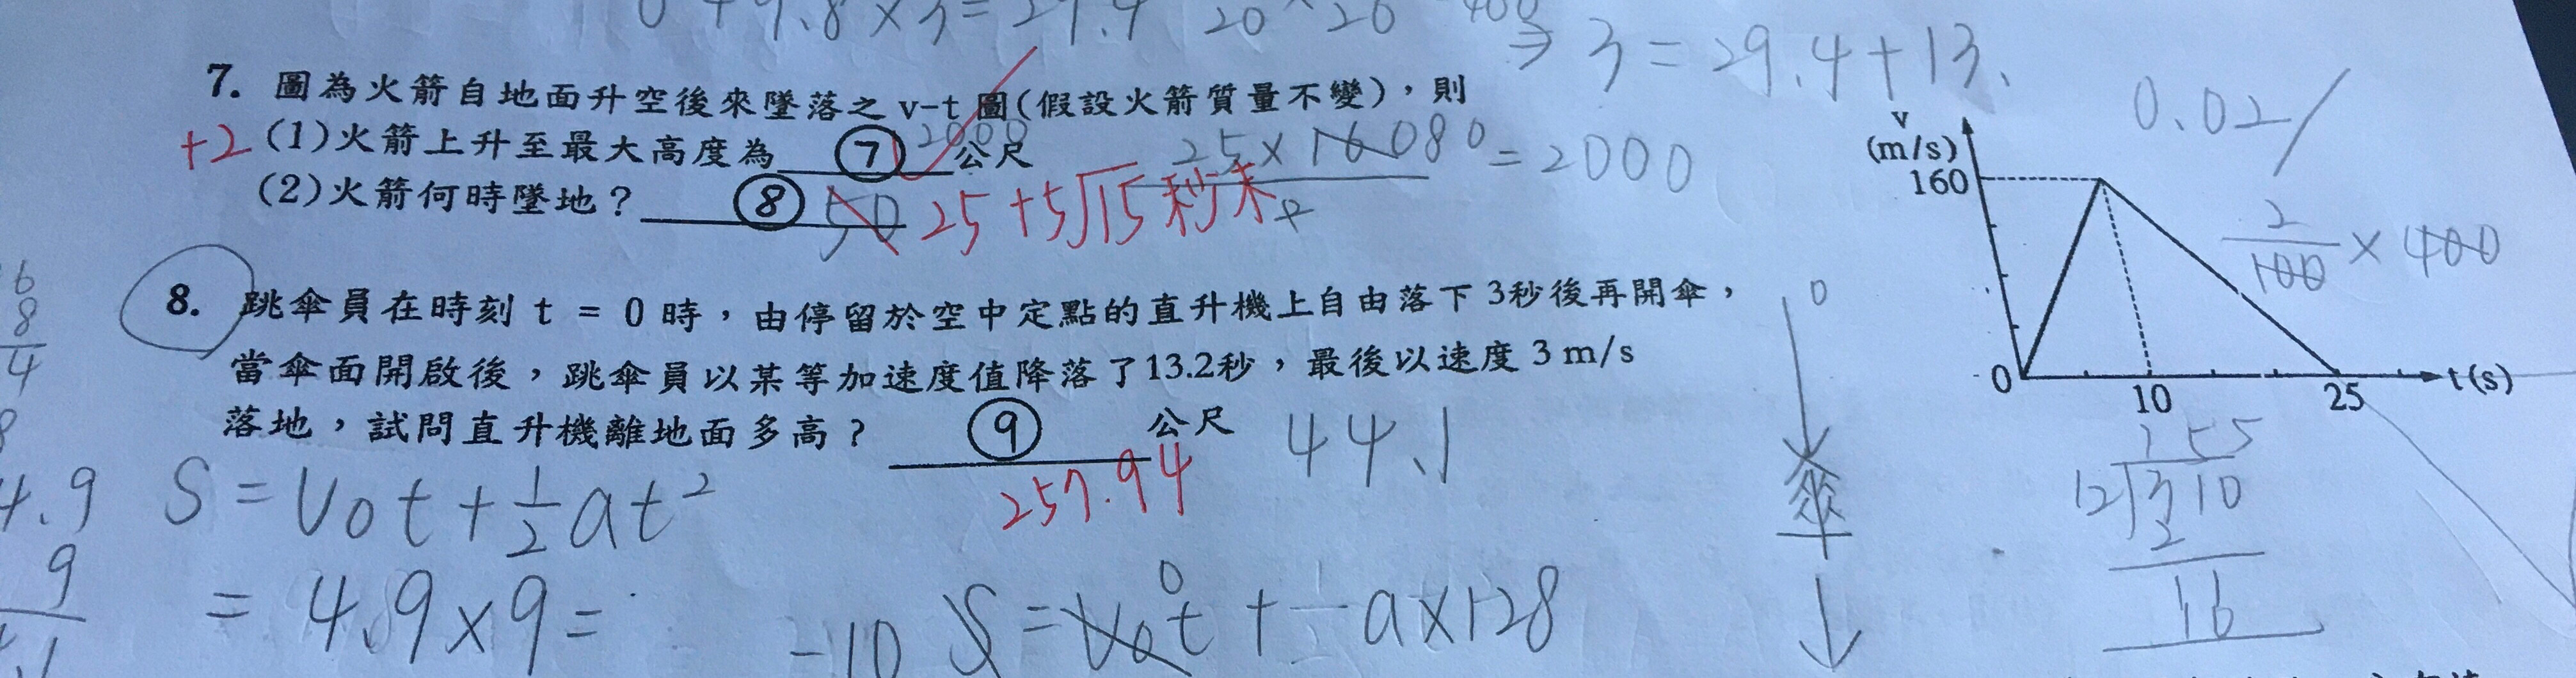 0 + 9.8 × 3 = 29.4 20 × 20 400
⇒ 3 = 29.4 + 13.
7. 圖為火箭自地面升空後來墜落之 v-t 圖(假設火箭質量不變)，則
+2 (1)火箭上升至最大高度為 ⑦ 2000 公尺
25 × 16080 = 2000
2
(2)火箭何時墜地？ ⑧ 50 25 + 5√15 秒末
0.02
v
(m/s)
160
0 10 25 t(s)
2
100 × 400
8. 跳傘員在時刻 t = 0 時，由停留於空中定點的直升機上自由落下 3秒後再開傘，
當傘面開啟後，跳傘員以某等加速度值降落了13.2秒，最後以速度 3 m/s
落地，試問直升機離地面多高？ ⑨ 公尺 44.1
257.94
0
傘
S = V₀t + ½at²
= 4.9 × 9 =
-10 S = V₀t 0 + ½a×128
6
8
4
4.9
9
155
12 310
2
16